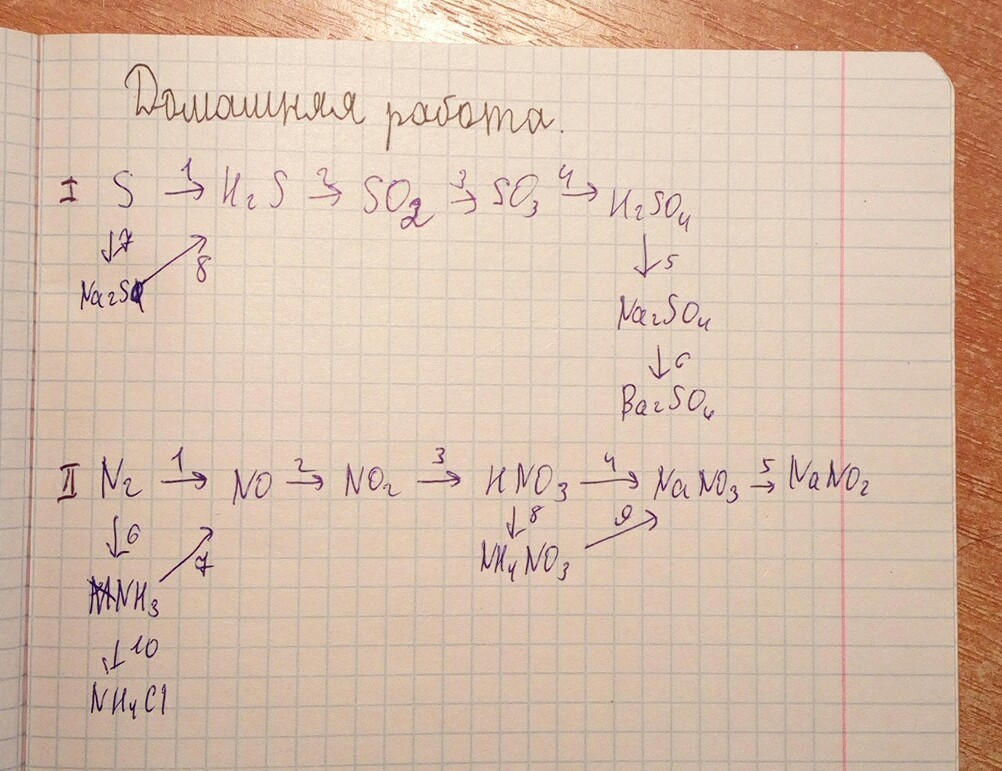 Домашняя работа.
I S 1→ H₂S 2→ SO₂ 3→ SO₃ 4→ H₂SO₄
↓7 8↗ ↓5
Na₂S Na₂SO₄
↓6
Ba₂SO₄
II N₂ 1→ NO 2→ NO₂ 3→ HNO₃ 4→ NaNO₃ 5→ NaNO₂
↓6 7↗ ↓8 9↗
NH₃ NH₄NO₃
↓10
NH₄Cl